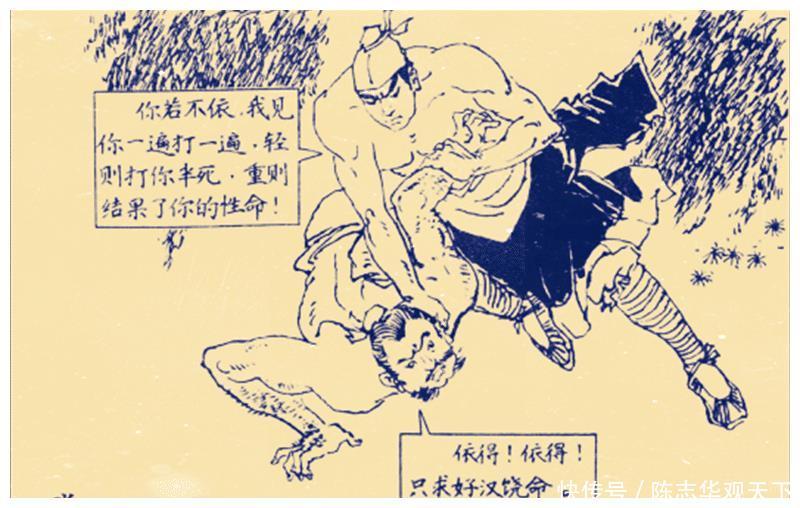 你若不依，我见
你一遍打一遍，轻
则打你半死，重则
结果了你的性命！
依得！依得！
只求好汉饶命
快传号 / 陈志华观天下